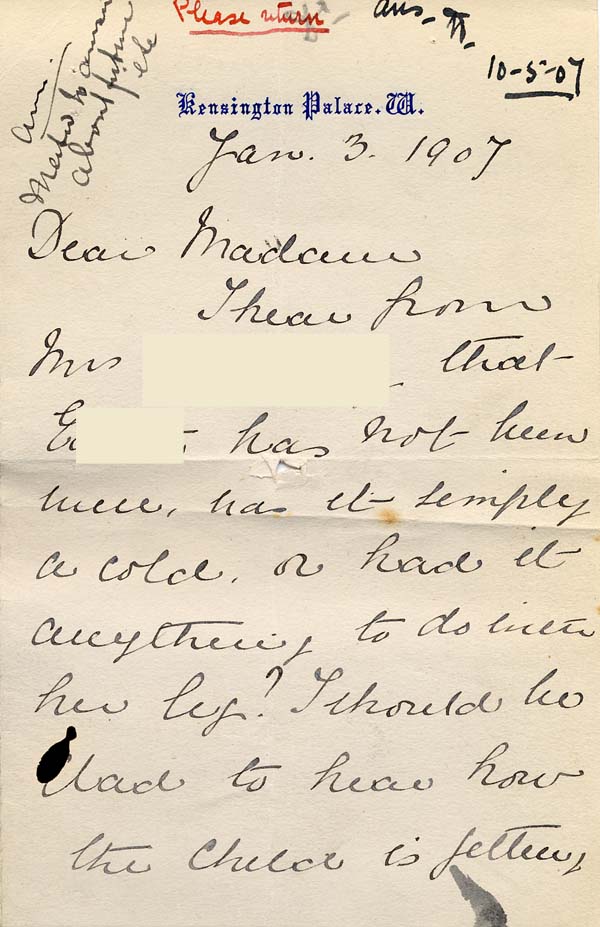 Please return
ans.
10-5-07
about future
Kensington Palace. W.
Jan. 3. 1907
Dear Madam
I hear from
Mrs that
E has not been
well, has it simply
a cold, or had it
anything to do with
her leg? I should be
glad to hear how
the child is getting